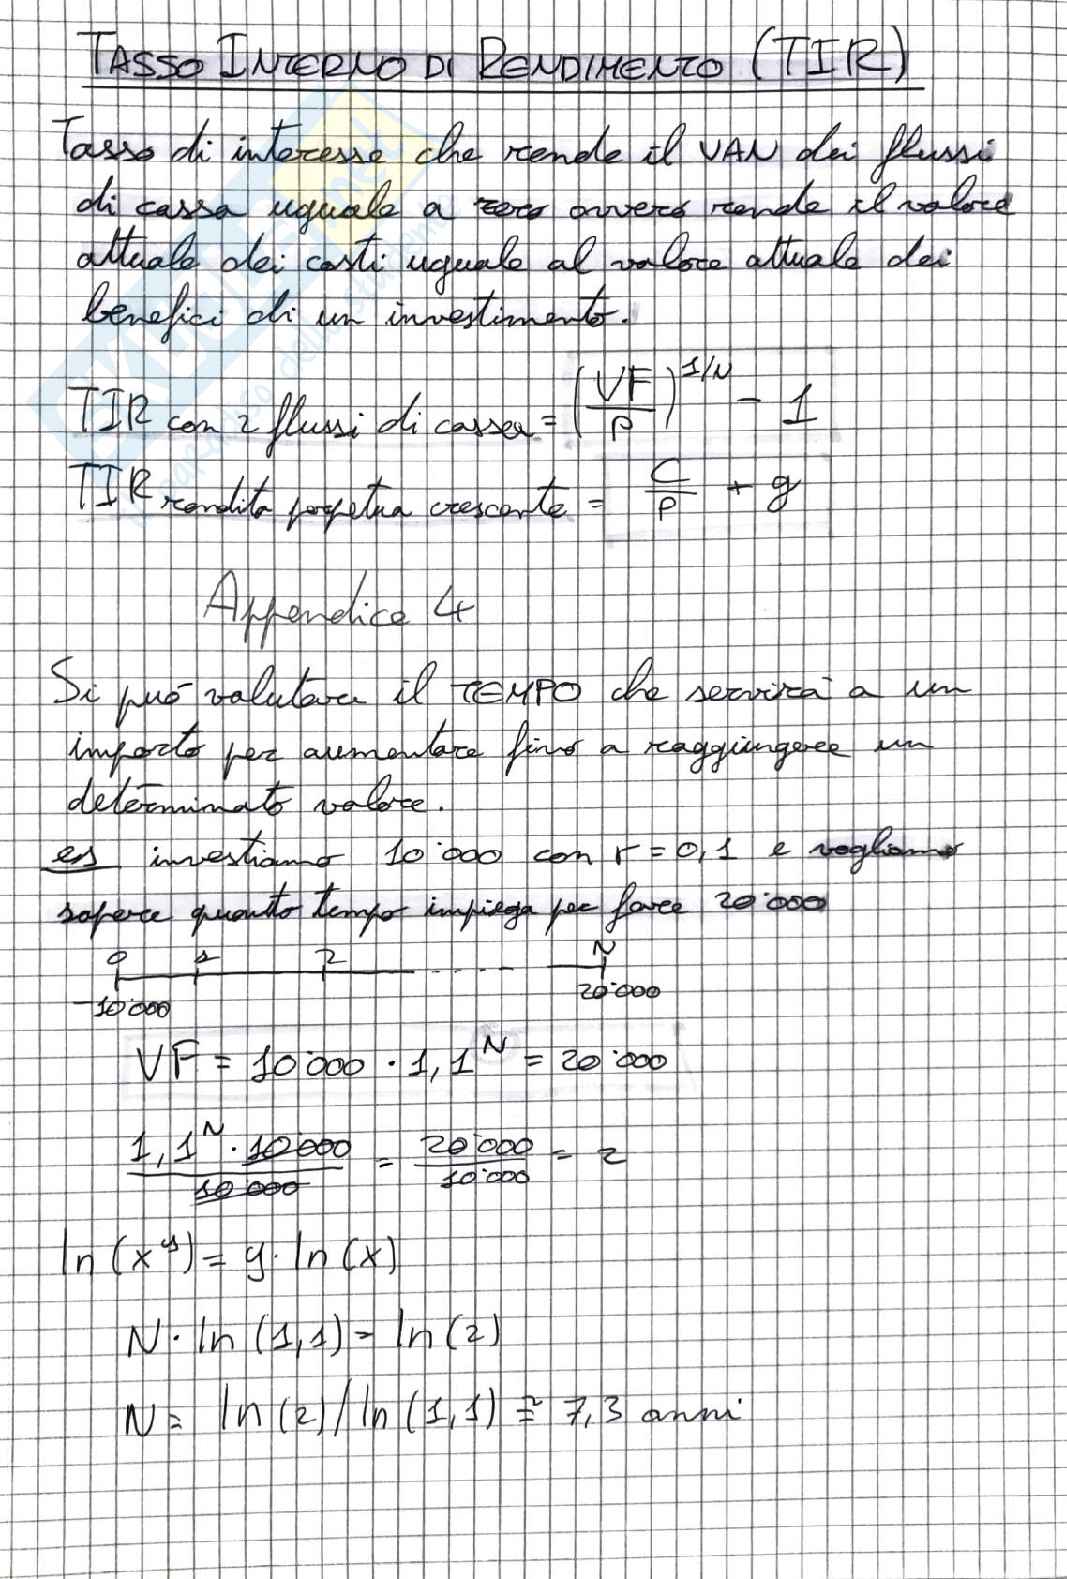 TASSO INTERNO DI RENDIMENTO (TIR)
Tasso di interesse che rende il VAN dei flussi
di cassa uguale a zero ovvero rende il valore
attuale dei costi uguale al valore attuale dei
benefici di un investimento.
TIR con 2 flussi di cassa = (VF/P)^1/N - 1
TIR rendita perpetua crescente = C/P + g
Appendice 4
Si può valutare il TEMPO che servirà a un
importo per aumentare fino a raggiungere un
determinato valore.
es investiamo 10'000 con r = 0,1 e vogliamo
sapere quanto tempo impiega per fare 20'000
0 1 2 N
-10'000 20'000
VF = 10'000 · 1,1^N = 20'000
1,1^N · 10'000 / 10'000 = 20'000 / 10'000 = 2
ln (x^y) = y · ln (x)
N · ln (1,1) = ln (2)
N = ln (2) / ln (1,1) ≅ 7,3 anni